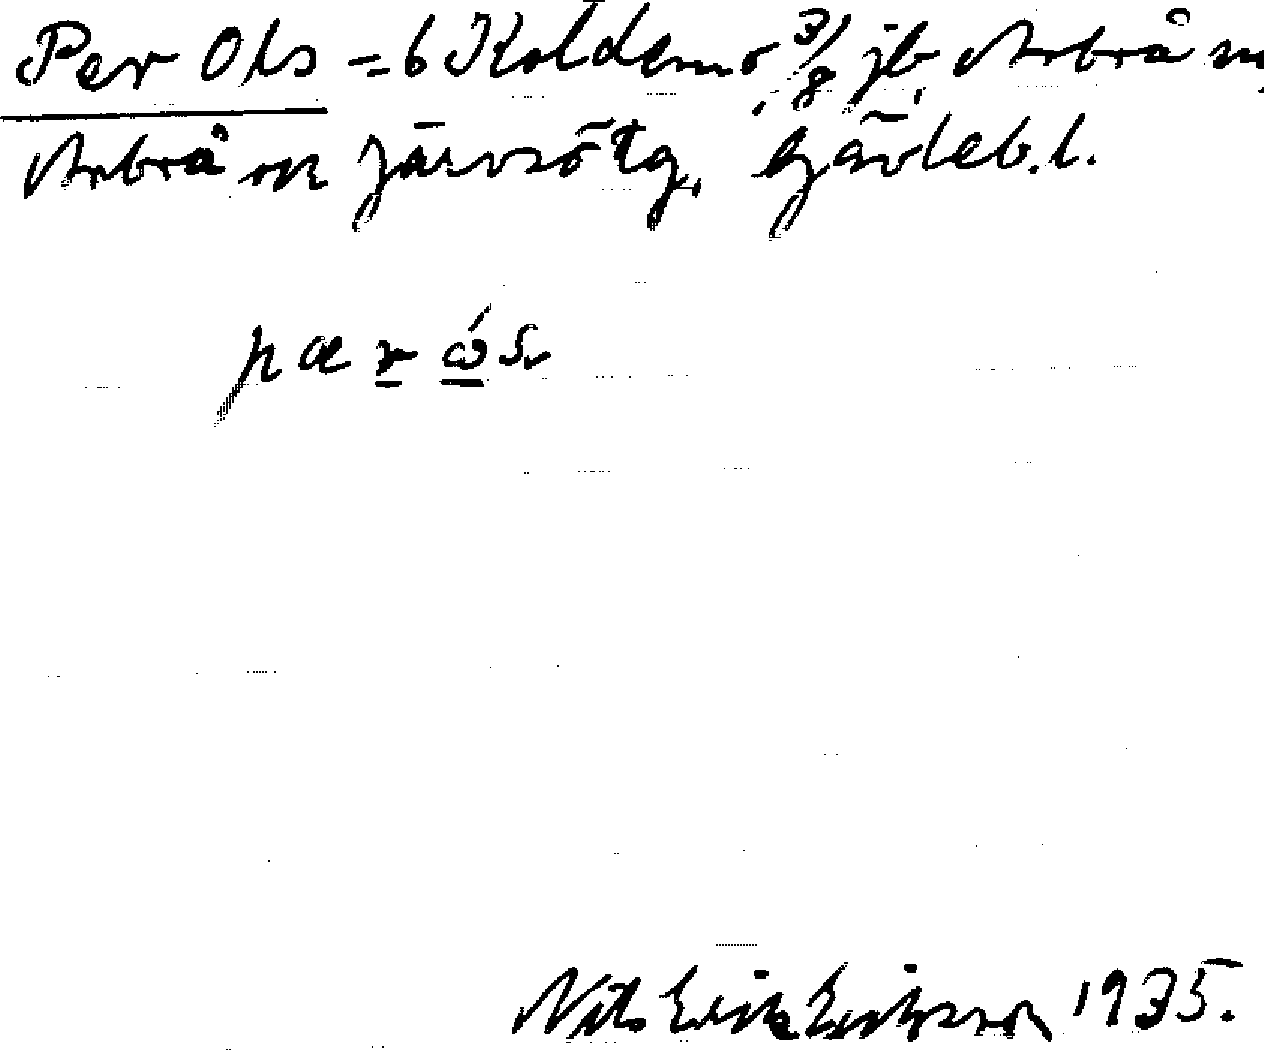 Per Ols = 6 Koldemo, 3/8 jb, Arbrå sn,
Arbrå ok Järvsö tg, Gävleb. l.
pær ώs
Nils Erik Eriksson 1935.